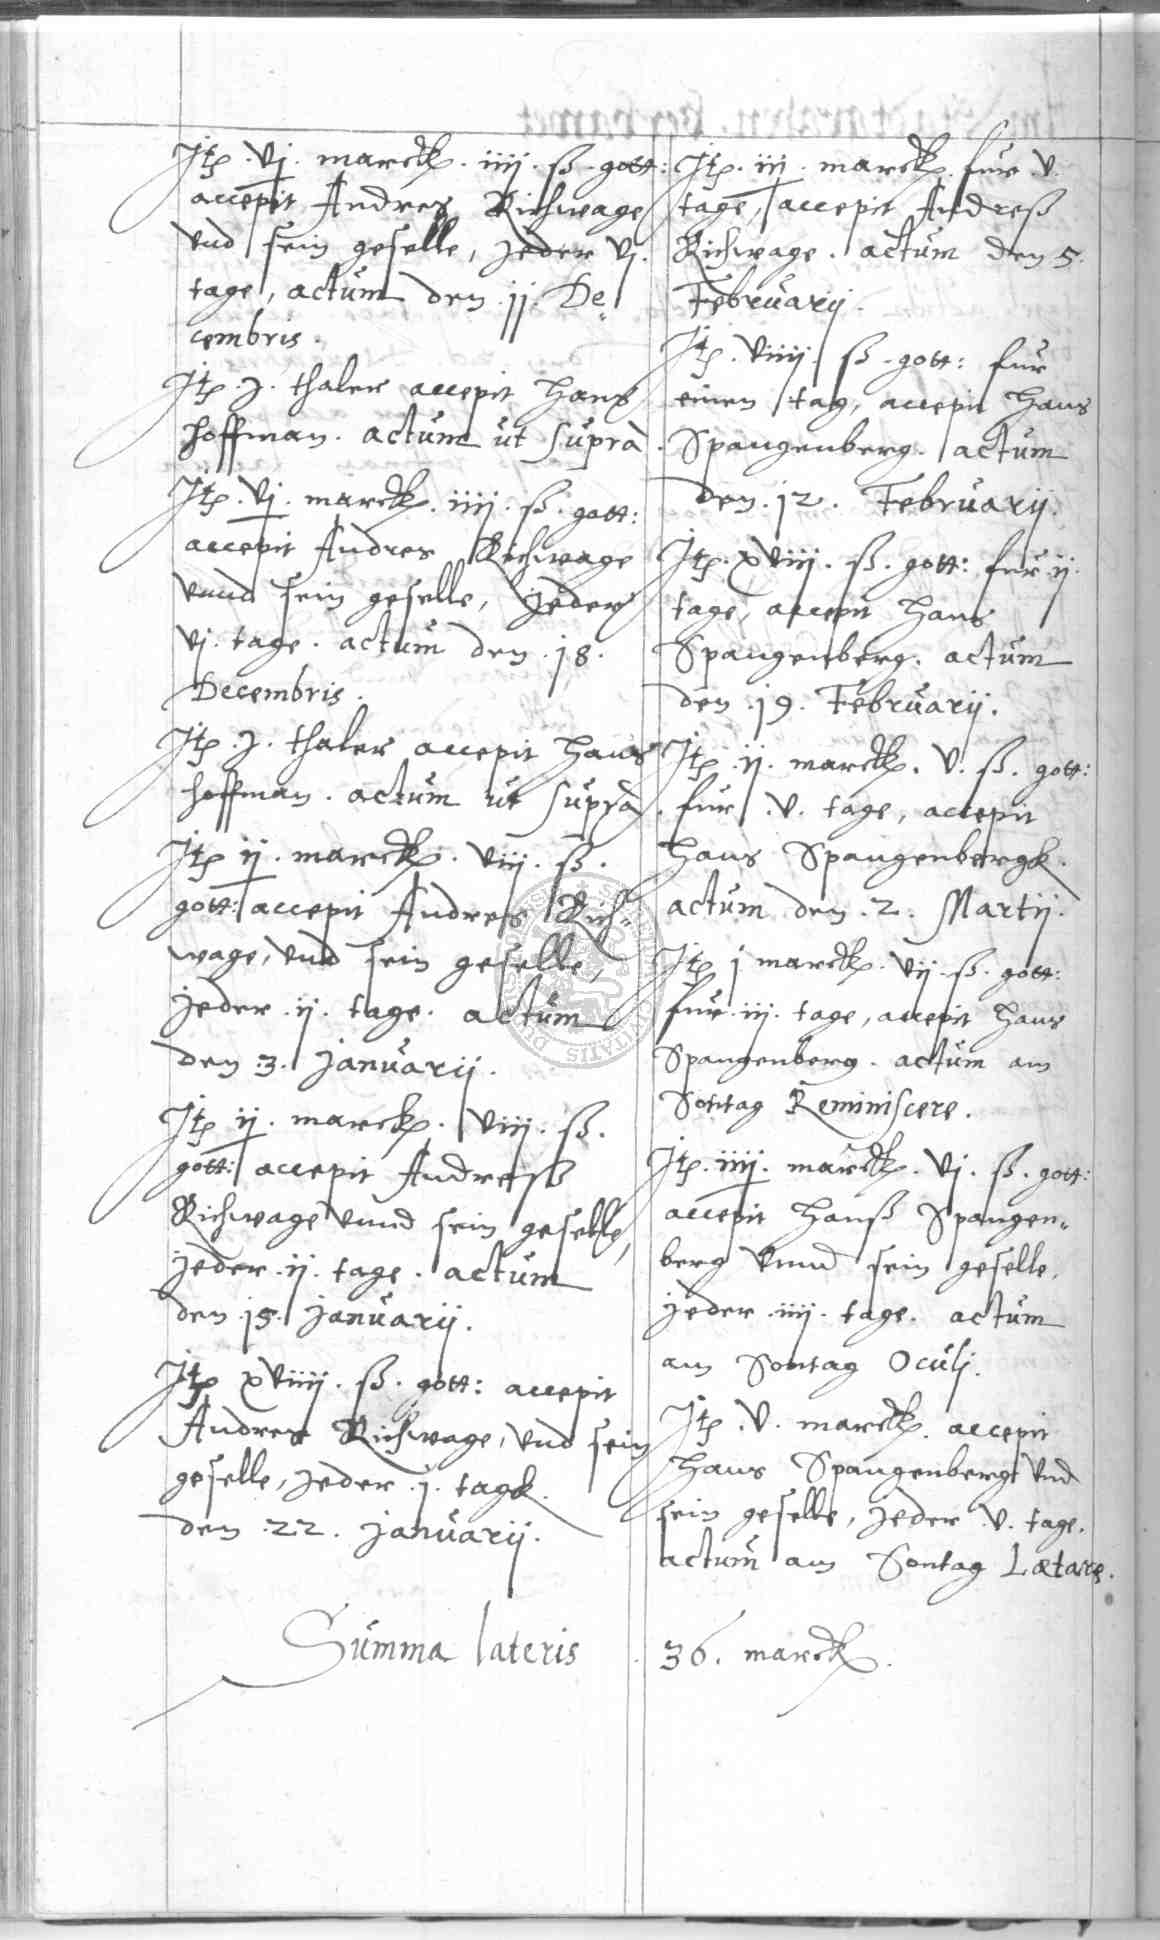 Itē . vj . marck . iiij . ß . gott:
accepit Andres Richwage
vnd sein geselle, jeder vj .
tage, actum den . jj . De=
cembris .
Itē . J . thaler accepit Hans
Hoffman . actum ut suprà .
Itē . vj . marck . iiij . ß . gott:
accepit Andres Richwage
vnnd sein geselle, jeder
vj . tage . actum den . j8 .
Decembris .
Itē . J . thaler accepit Hans
Hoffman . actum ut suprà .
Itē ij . marck . viij . ß .
gott: accepit Andres Rich=
wage, vnd sein geselle,
jeder . ij . tage . actum
den . 3 . Januarij .
Itē ij . marck . viij . ß .
gott: accepit Andreß
Richwage vnnd sein geselle,
jeder . ij . tage . actum
den . j5 . Januarij .
Itē xviiij . ß . gott: accepit
Andres Richwage, vnd sein
geselle, jeder . j . tagk .
den . 22 . Januarij .
Itē . iij . marck . fur . v .
tage, accepit Andreß
Richwage . actum den 5 .
Februarij .
Itē . viiij . ß . gott: fur
einen tag, accepit Hans
Spangenberg . actum
den . j2 . Februarij .
Itē . xviij . ß . gott: fur . ij .
tage, accepit Hans
Spangenberg . actum
den . j9 . Februarij .
Itē . ij . marck . v . ß . gott:
fur . v . tage, accepit
Hans Spangenbergk .
actum den . 2 . Martij .
Itē j marck . vij . ß . gott:
fur . iij . tage, accepit Hans
Spangenberg . actum am
Sontag Reminiscere .
Itē . iiij . marck . vj . ß . gott:
accepit Hanß Spangen=
berg vnnd sein geselle,
jeder . iiij . tage . actum
am Sontag Oculj .
Itē . v . marck . accepit
Hans Spangenberg vnd
sein geselle, jeder . v . tage .
actum am Sontag Lætare .
Summa lateris . 36 . marck .